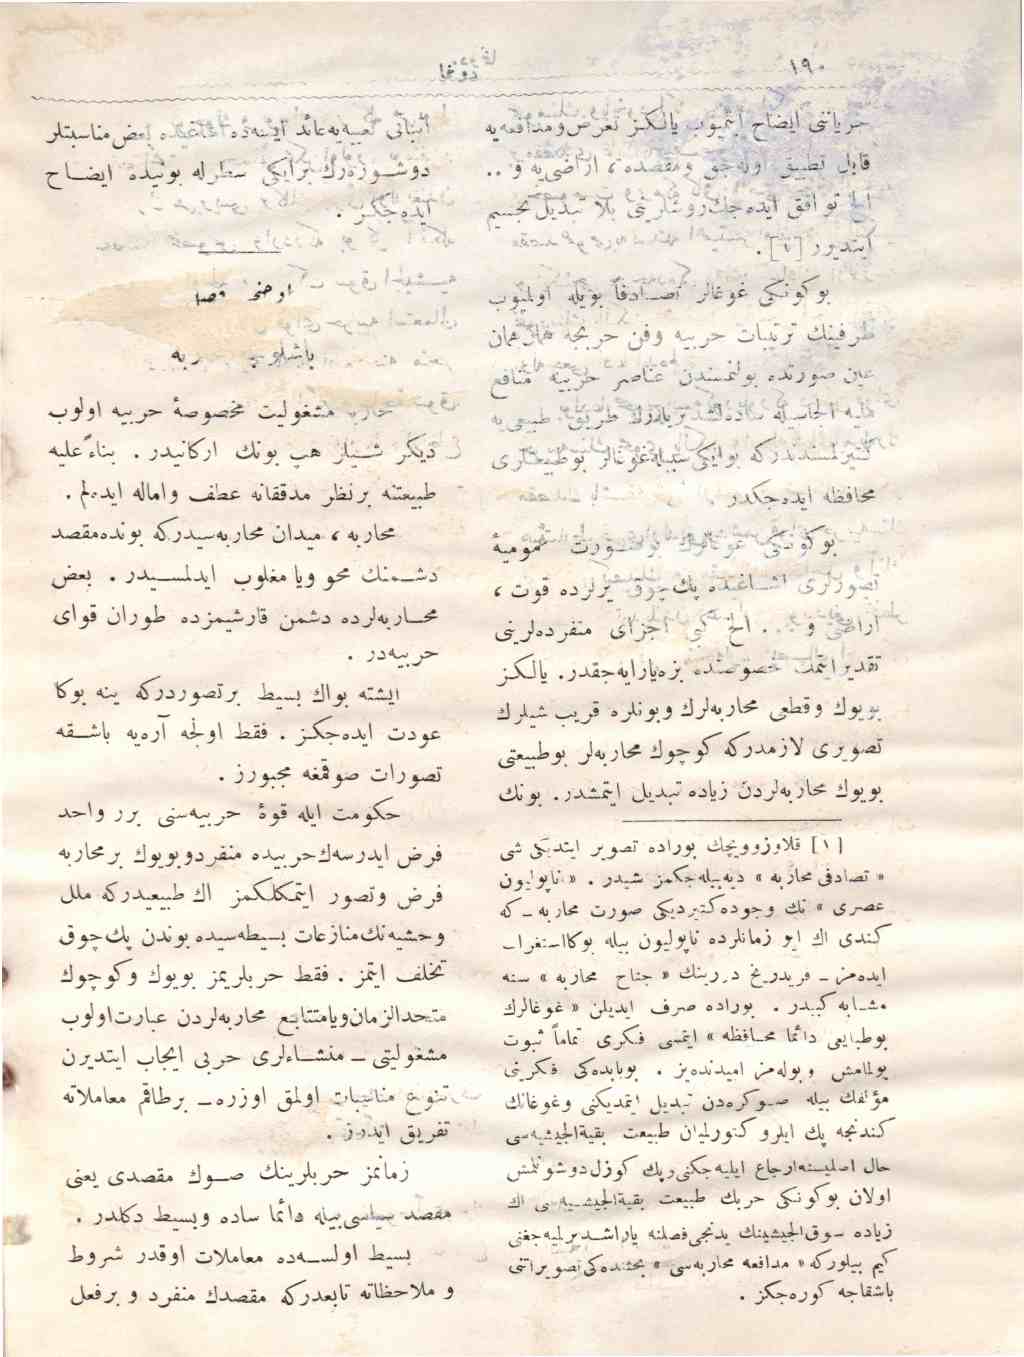 ١٩٠
غوغا
جرياننى ايضاح ايتميوب يالكز تعرض و مدافعه يه
قابل تطبيق اوله جق ومقصده ، اراضى يه و ..
الخ توافق ايده جك روشلرينى بلا تبديل تجسيم
ايتديرر [١] .
بوكونكى غوغالر تصادفاً بويله اولميوب
طرفينك ترتيبات حربيه وفن حربجه همان همان
عين صورتده بولنمسندن عناصر حربيه منافع
مليه الجاسيله ساده لشديريله رك طريق طبيعى يه
كتيرلمسندندركه بوايكى سببله غوغالر بوطبيعتلرى
محافظه ايده جكدر .
بوكونكى غوغالرك بو صورت عموميهٔ
تصورلرى اشاغيده پك چوق يرلرده قوت ،
اراضى و ... الخ كبى اجزاى منفرده لرينى
تقدير ايتمك خصوصنده بزه يارايه جقدر. يالكز
بويوك وقطعى محاربه لرك وبونلره قريب شيلرك
تصويرى لازمدركه كوچوك محاربه لر بوطبيعتى
بويوك محاربه لردن زياده تبديل ايتمشدر. بونك
[١] قلاوزوويچك بوراده تصوير ايتديكى شى
« تصادفى محاربه » ديه بيله جكمز شيدر . « ناپوليون
عصرى » نك وجوده كتيرديكى صورت محاربه ـ كه
كندى اك ايو زمانلرده ناپوليون بيله بوكا استغراب
ايده مز ـ فريدريخ دورينك « جناح محاربه » سنه
مشابه كبيدر . بوراده صرف ايديلن « غوغالرك
بوطبايعى دائما محافظه » ايتمسى فكرى تماماً ثبوت
بولمامش وبوله مز اميدنده يز . بوبابده كى فكرينى
مؤلفك بيله صوكره دن تبديل ايتمديكنى وغوغانك
كندنجه پك ايلرو كتورليان طبيعت بقية الجيشيه سى
حال اصليسنه ارجاع ايليه جكنى و پك كوزل دوشونلمش
اولان بوكونكى حربك طبيعت بقية الجيشيه سى اك
زياده سوق الجيشينك يدنجى فصلنه ياراشديرلميه جغنى
كيم بيلوركه « مدافعه محاربه سى » بحثنده كى تصويراتنى
باشقاجه كوره جكز .
اثباتى تعبيه يه عائد ايسه ده اشاغيده بعض مناسبتلر
دوشوره رك برايكى سطرله بونيده ايضاح
ايده جكز .
اوچنجى فصل
باشلوجه محاربه
محاربه مشغوليت مخصوصهٔ حربيه اولوب
ديكر شيلر هپ بونك اركانيدر . بناءً عليه
طبيعتنه بر نظر مدققانه عطف واماله ايده لم .
محاربه ، ميدان محاربه سيدركه بونده مقصد
دشمنك محو ويا مغلوب ايدلمسيدر . بعض
محاربه لرده دشمن قارشيمزده طوران قواى
حربيه در .
ايشته بو اك بسيط بر تصوردركه ينه بوكا
عودت ايده جكز . فقط اولجه آره يه باشقه
تصورات صوقمغه مجبورز .
حكومت ايله قوهٔ حربيه سنى برر واحد
فرض ايدرسه ك حربيده منفرد و بويوك بر محاربه
فرض وتصور ايتمكلكمز اك طبيعيدركه ملل
وحشيه نك منازعات بسيطه سيده بوندن پك چوق
تخلف ايتمز . فقط حربلريمز بويوك وكوچوك
متحد الزمان ويا متتابع محاربه لردن عبارت اولوب
مشغوليتى ـ منشاءلرى حربى ايجاب ايتديرن
تنوع مناسبات اولمق اوزره ـ برطاقم معاملاته
تفريق ايدرز .
زمانمز حربلرينك صوك مقصدى يعنى
مقصد سياسى بيله دائما ساده وبسيط دكلدر .
بسيط اولسه ده معاملات اوقدر شروط
و ملاحظاته تابعدركه مقصدك منفرد و بر فعل